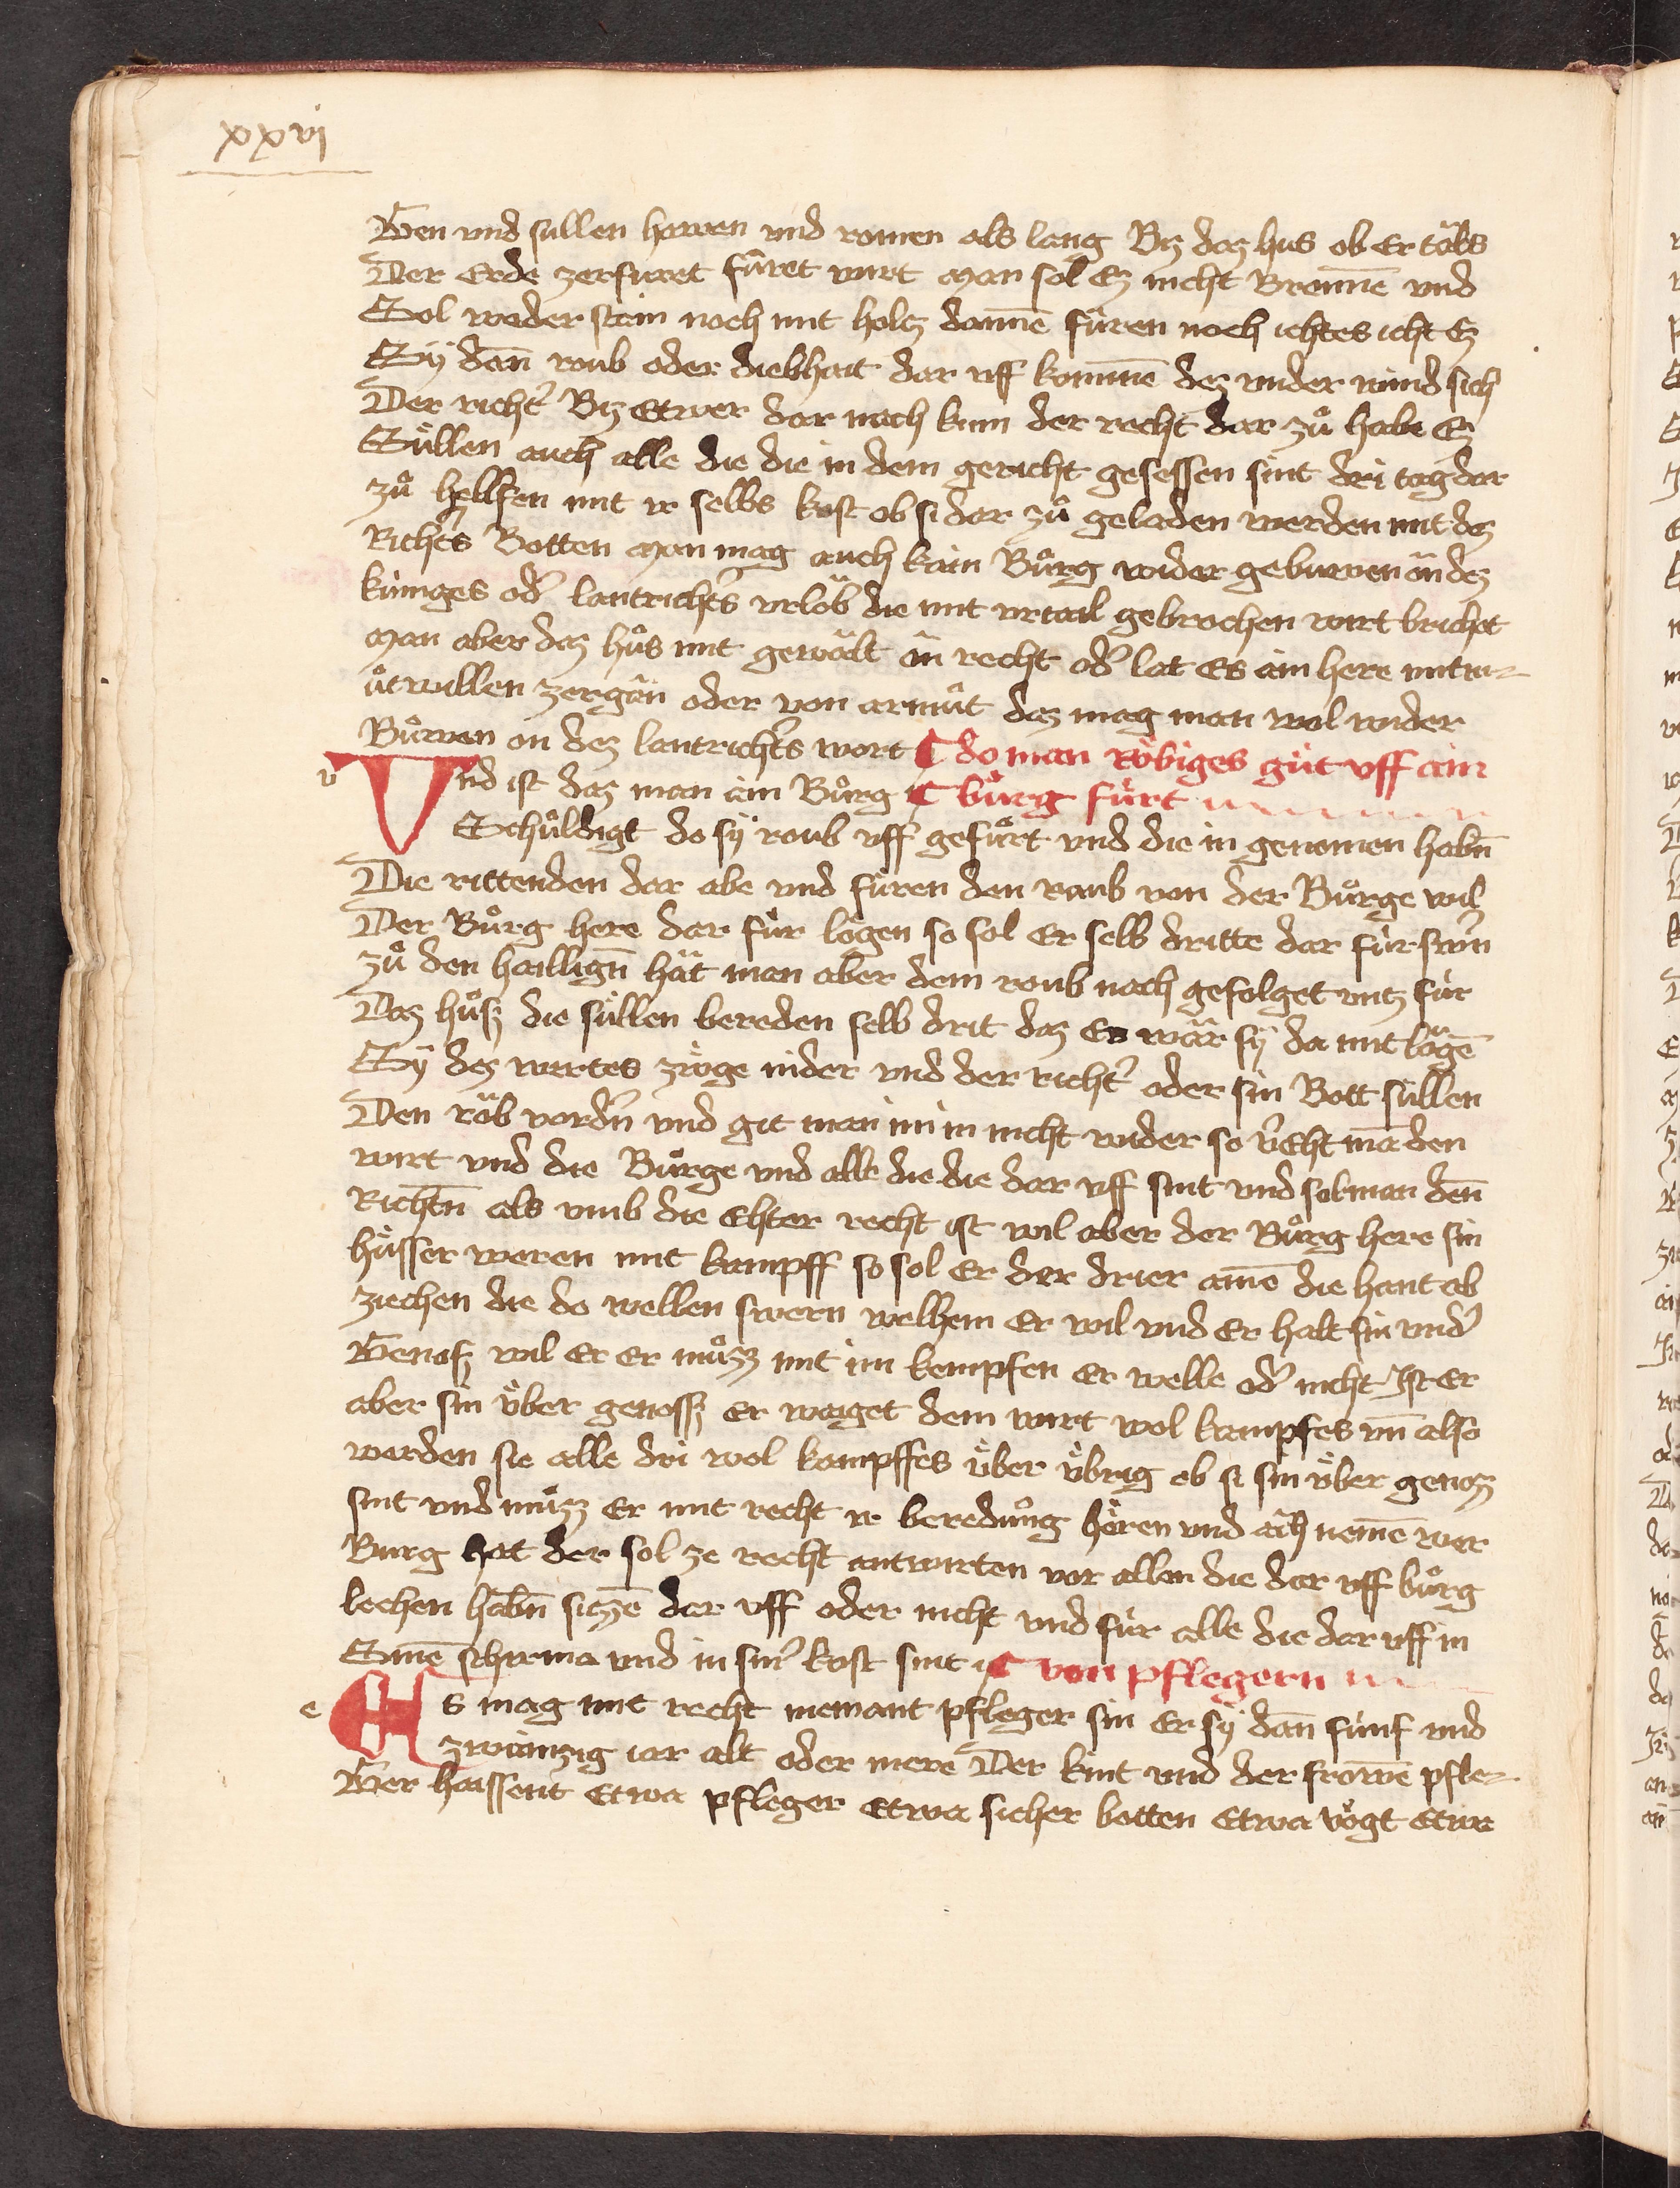 xxvi
Gen und sullen howen und romen als lang Biz daz hus ob Ertälbs
Der Erde zerfuret fu̍ret wirt Man sol Ez nicht Brennē und
Sol weder stain noch mit holtz dannē fu̍ren noch ichtes icht Ez
Sÿ dan̄ roub oder diebhait dar uff kommē dez under wind sich
Der richt͛ Biz Etwer dar nach kum der recht dar zů habe Ez
Su̍llen auch alle die die in dem gericht gesessen sint dri tag dar
zů hellfen mit ir selbs kost ob si dar zů geladen werden mit dez
Richt͛s Botten Man mag auch kain Bu̍rg wider gebuwen ân dez
kuniges od͛ lantricht͛s urlôb die mit urtail gebrochen wirt brichet
Man aber dez hůs mit gewält ân recht od͛ lat Es ain here mitm-
u̍twillen zergân oder von armůt daz mag man wol wider
Bůwen on dez lantricht͛s wort ¶ do man röbiges gůt uff ain
v Und ist daz man ain Bůrg ¶ burg fu̍rt
Schůldigt do sÿ roub uff gefůrt und die in genomen habn̄
Die rittenden dar abe und fu̍ren den raub von der Bu̍rge wil
Der Bůrg here dar fu̍r lögen so sol Er selb dritte dar fu̍r swern
zů den haillign̄ hât man aber dem roub nach gefolget untz fu̍r
Daz hu̍sz die su̍llen bereden selb drit daz Es wâr sÿ da mit lögē
Sÿ dez wirtes zu̍ge nider und der richt͛ oder sin Bott sullen
Den röb vord͛n und git man im in nicht wider so v͛Echt mā den
wirt und die Bu̍rge und alle die die dar uff sint und sol man den̄
Richtn̄ als umb die Echter recht ist wil aber der Bůrg here sin
hu̍sser weren mit kampff so sol Er der drier ainē die hant ab
ziechen die do wellen swern welhem Er wil und Er halt sin und͛
Genosz wil Er Er mu̍zz mit im kempfen Er welle od͛ nicht Ist Er
aber sin u̍ber genossz Er waiget dem wirt wol kampfes un̄ also
werden sie alle dri wol kampffes u̍ber u̍brig ob si sin u̍ber genoz
sint und mu̍zz Er mit recht ir beredung hören und âch nemē wer
Burg hat der sol ze recht antwirten vor allen die dar uff bůrg
lechen habn̄ sitzzē dar uff oder nicht und fu̍r alle die dar uff in
Sinē schirma und in sin͛ kost sint ¶ von pflegern
e Es mag mit recht niemant pfleger sin Er sÿ dan̄ fu̍nf und
zwainzig iar alt oder mere Der kint und der frowē pfle-
Ger haissent Etwa pfleger Etwa sicher botten Etwa vögt Etwe